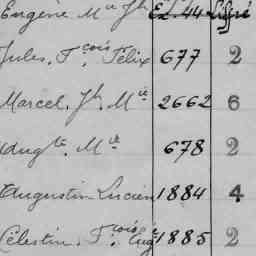 Eugène Mie Jh Ed. 44 Liffré
Jules, Fçois Félix 677 2
Marcel, Jh Mie 2662 6
Augte Mie 678 2
Augustin Lucien 1884 4
Célestin, Fçois Aug 1885 2